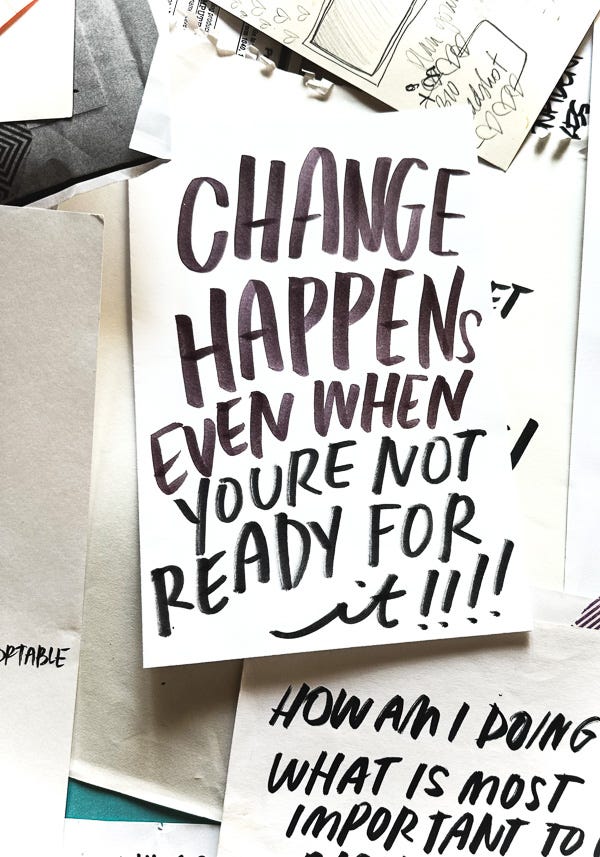 CHANGE
HAPPENS
EVEN WHEN
YOURE NOT
READY FOR
it!!!!
ORTABLE
HOW AM I DOING
WHAT IS MOST
IMPORTANT TO